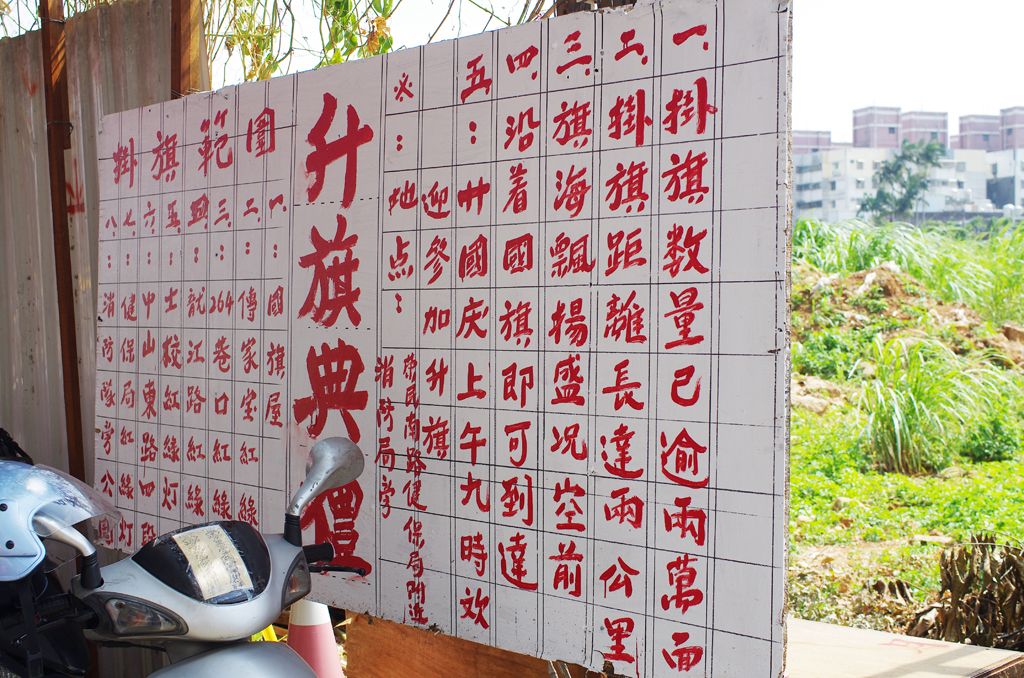 一、掛旗数量已逾兩萬面
二、掛旗距離長達兩公里
三、旗海飄揚盛况空前
四、沿着國旗即可到達
五：廿國庆上午九時欢
迎參加升旗
※：地点：
消防局旁
健保局附近
升旗典禮
掛旗範圍
一、：國旗屋
二、：傳家宝紅綠
三、：264巷口紅綠
四、：龍江路紅綠
五、：士校紅綠灯
六、：中山東路四段
七、：健保局紅綠灯
八、：消防隊旁公園